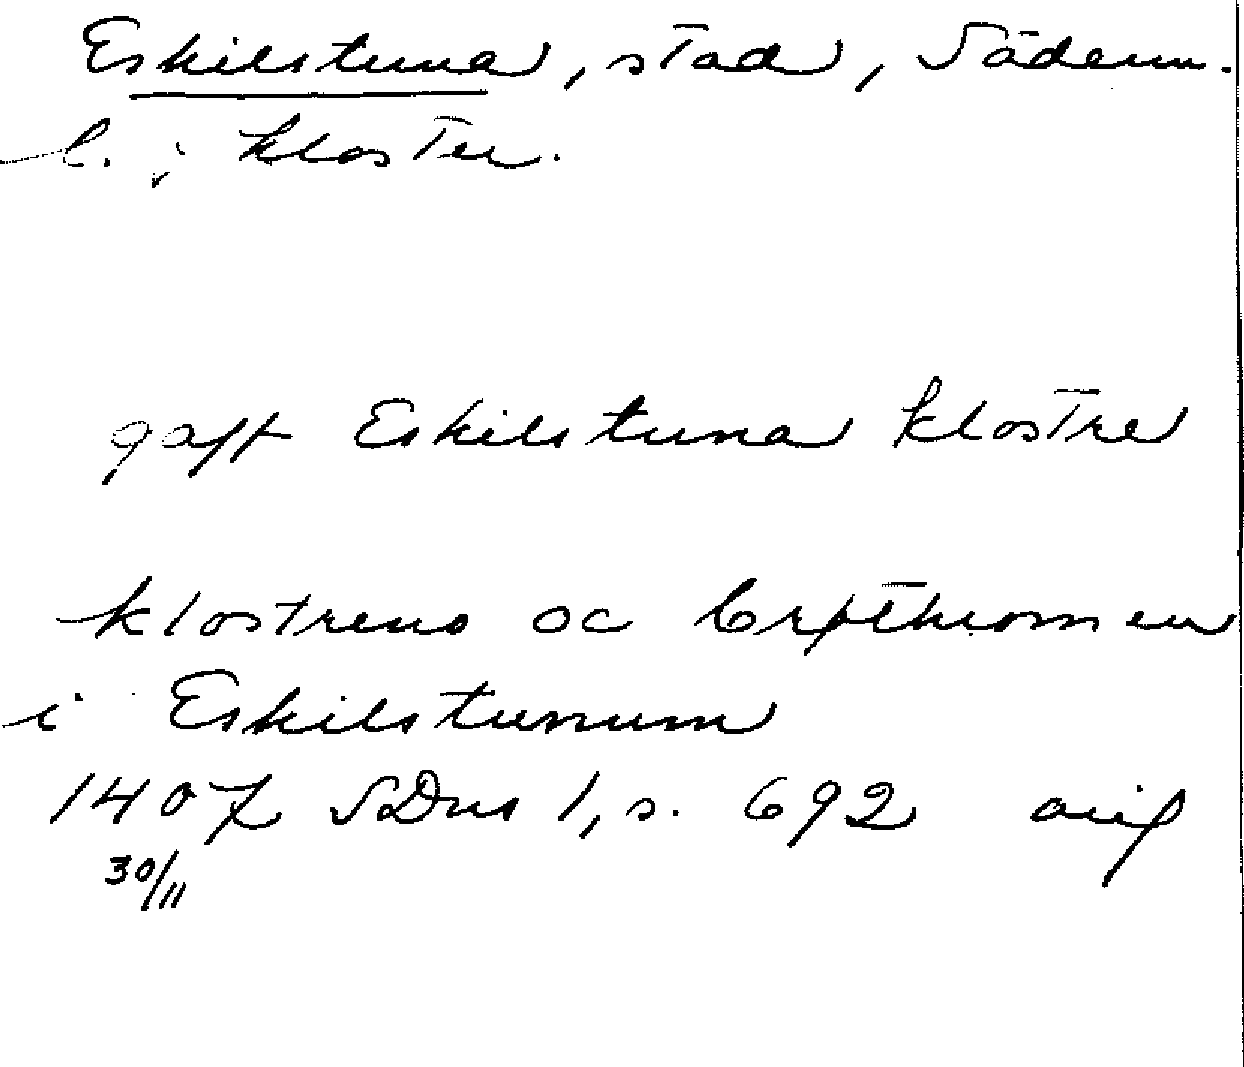 Eskilstuna, stad, Söderm.
l. ; kloster.
gaff Eskilstuna klostre
klostrens oc
i Eskilstunum
1407 SDns 1, s. 692 orig
30/11